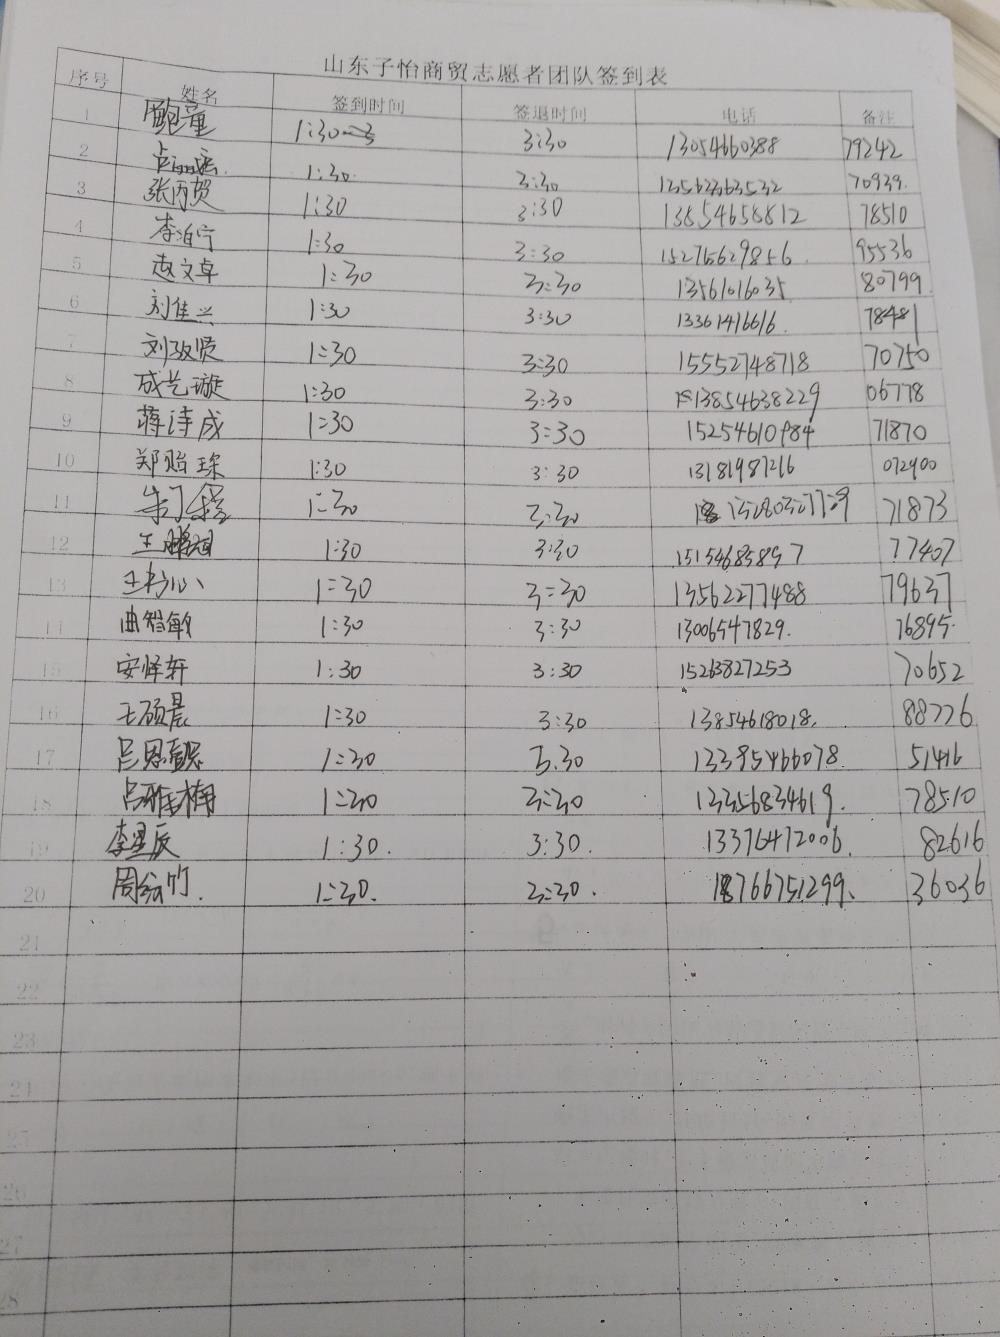 山东子怡商贸志愿者团队签到表
序号 姓名 签到时间 签退时间 电话 备注
1 鲍童 1:30 3:30 13054660388 79242
2 1:30. 3:30 13562363532 70939.
3 张丙贺 1:30 3:30 13854658812 78510
4 李泊宁 1:30 3:30 15275629856. 95536
5 赵文卓 1:30 3:30 13561016035. 80799.
6 刘佳兴 1:30 3:30 13361416616. 78481
7 刘政贤 1:30 3:30 15552748718 70750
8 成艺璇 1:30 3:30 13854638229 06778
9 蒋诗成 1:30 3:30 15254610984 71870
10 郑贻琛 1:30 3:30 13181987216 072900
11 1:30 3:30 71873
12 1:30 3:30 15154685897 77407
13 1:30 3:30 13562277488 79637
14 曲智敏 1:30 3:30 13006547829. 76895.
15 安怿轩 1:30 3:30 15263827253 70652
16 王硕晨 1:30 3:30 13854618018. 88776
17 吕恩懿 1:30 3.30 13395466078. 51416
18 吕雅楠 1:30 3:30 13356834619. 78510
19 李星辰 1:30. 3:30. 13376472006. 82616
20 周纭竹. 1:30. 3:30. 18766751299. 36036
21
22
23
24
25
26
27
28